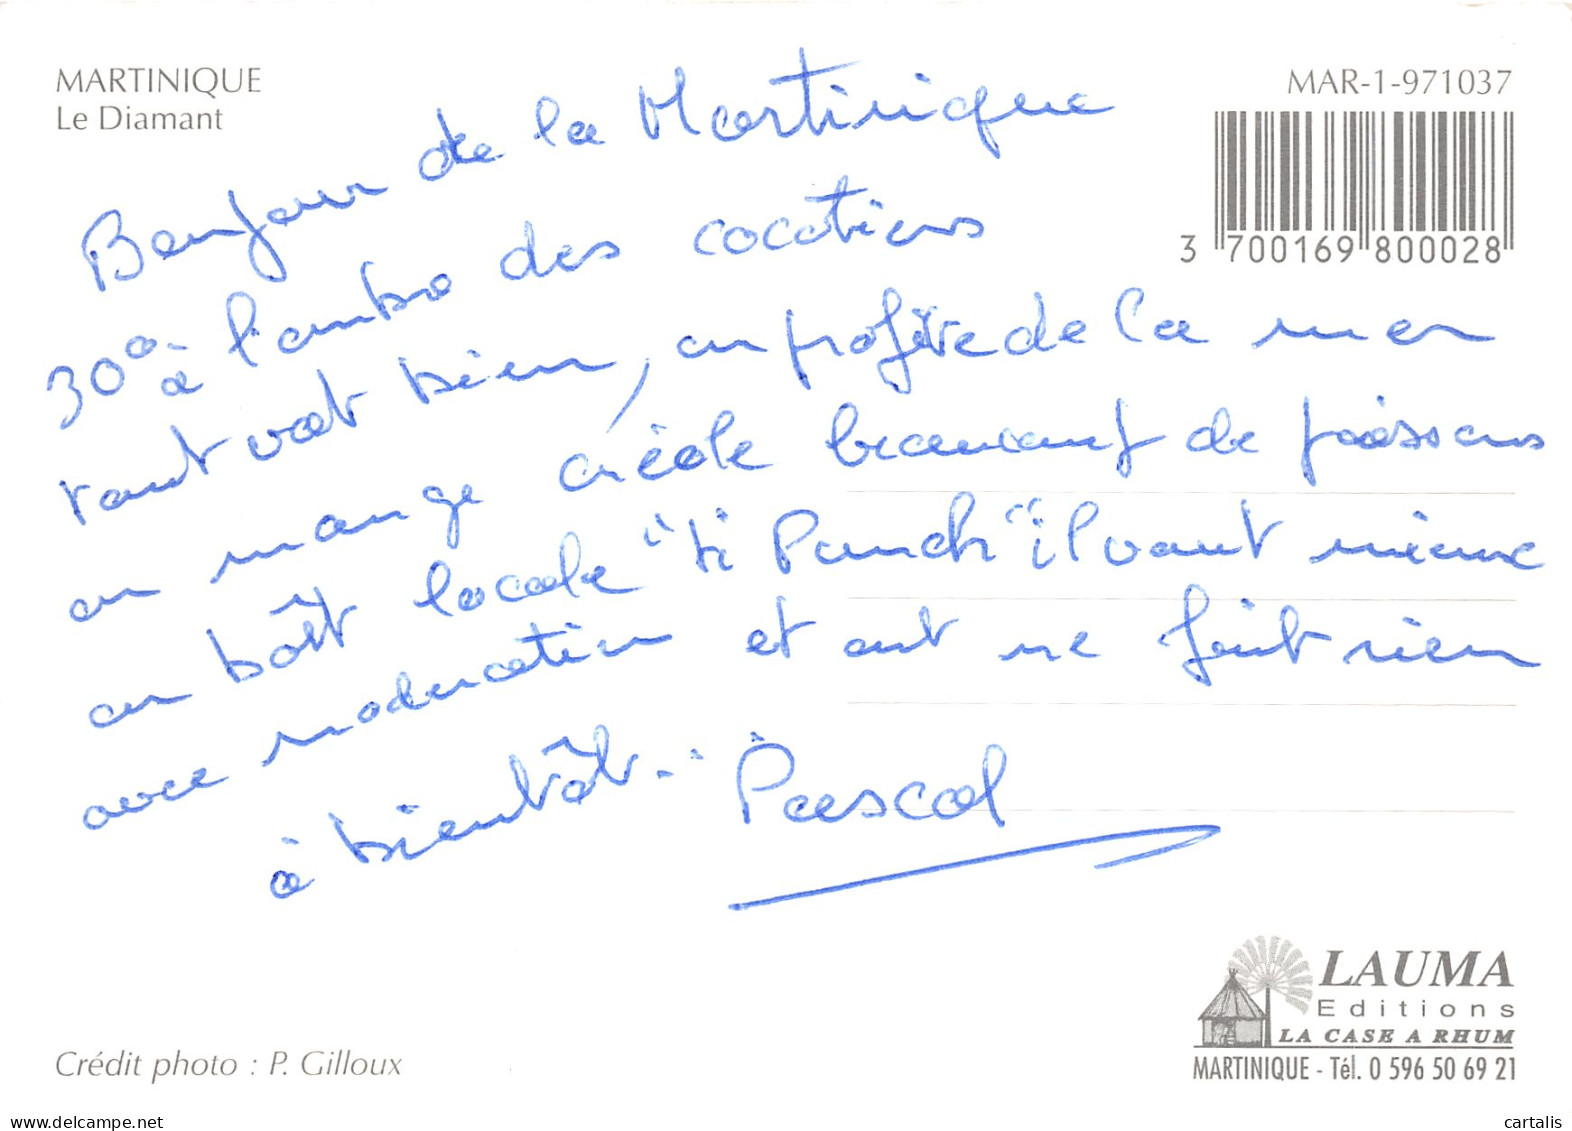 MARTINIQUE
Le Diamant
MAR-1-971037
3 700169 800028
Bonjour de la Martinique
30° à l'ombre des cocotiers
tout va bien, on profite de la mer
on mange créole beaucoup de poissons
on boit locale "ti Punch" il vaut mieux
avec modération et ont ne fait rien
à bientôt... Pascal
LAUMA
Editions
LA CASE A RHUM
MARTINIQUE - Tél. 0 596 50 69 21
Crédit photo : P. Gilloux
delcampe.net
cartalis